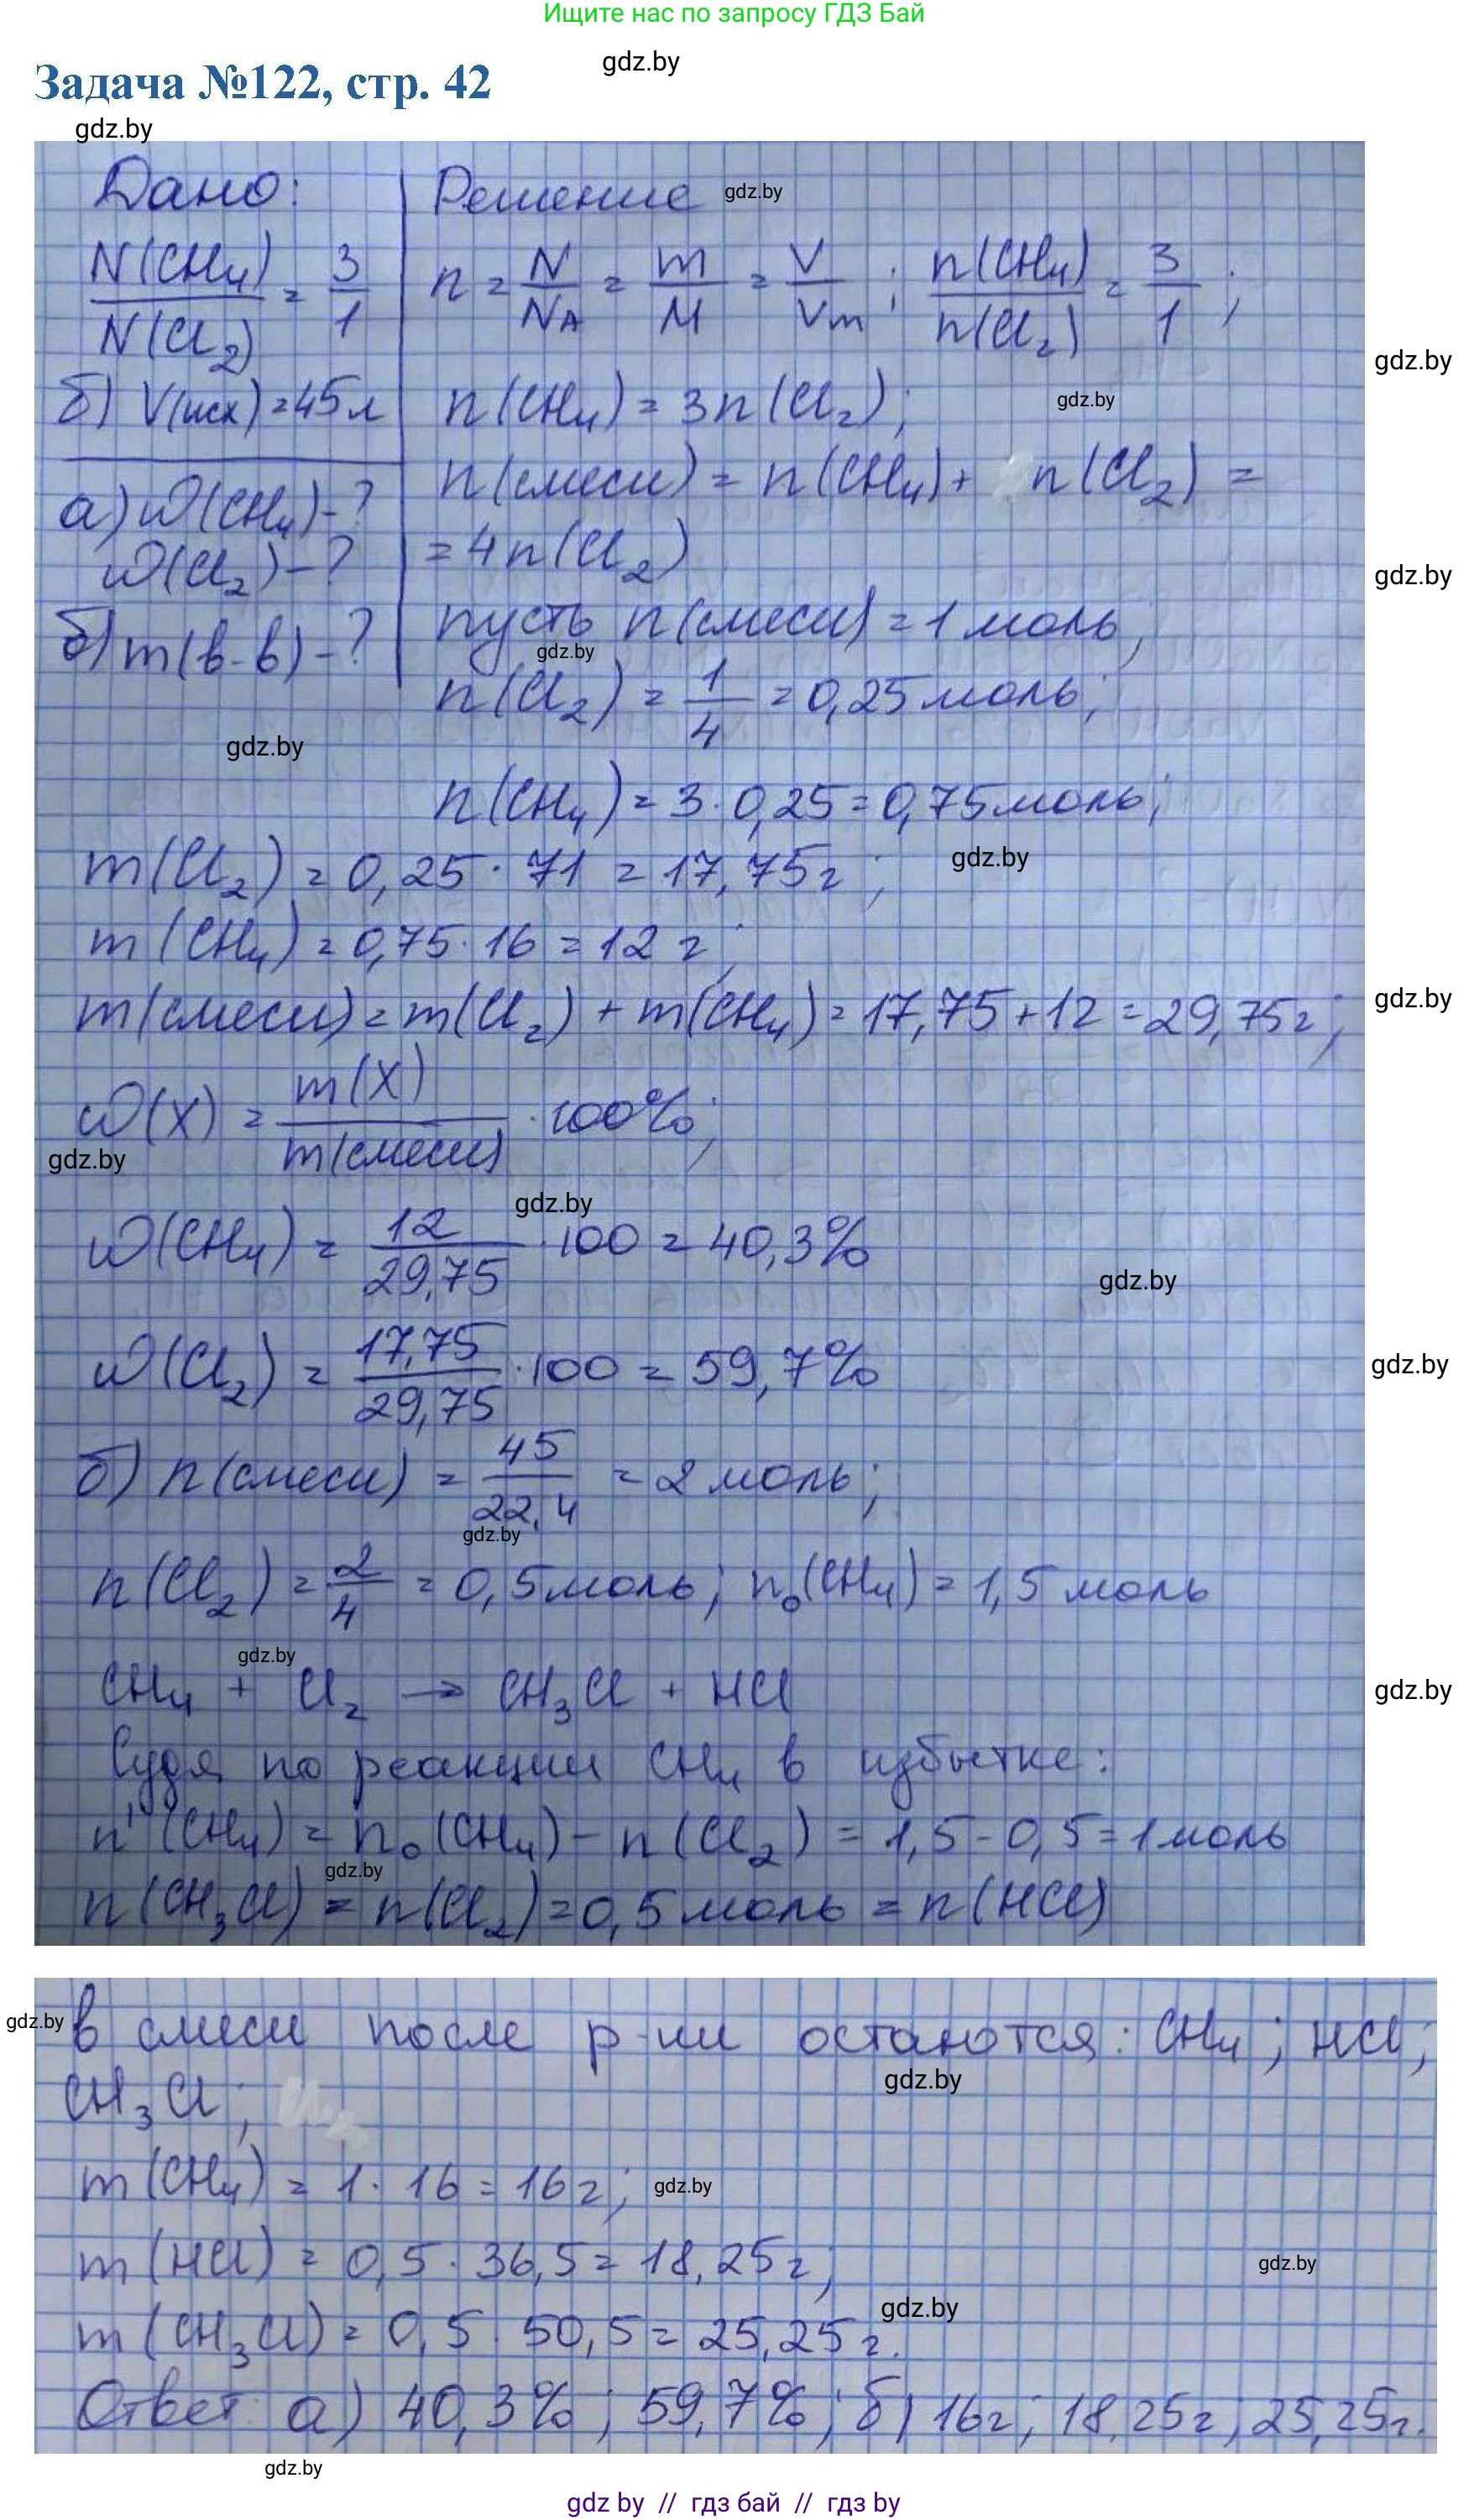 Ищите нас по запросу ГДЗ Бай
gdz.by
Задача №122, стр. 42
gdz.by
Дано:
N(CH₄)/N(Cl₂) = 3/1
б) V(исх) = 45 л
а) ω(CH₄) - ?
ω(Cl₂) - ?
б) m(в-в) - ?
Решение gdz.by
n = N/N_A = m/M = V/Vm; n(CH₄)/n(Cl₂) = 3/1;
gdz.by
n(CH₄) = 3n(Cl₂); gdz.by
n(смеси) = n(CH₄) + n(Cl₂) =
= 4n(Cl₂)
gdz.by
пусть n(смеси) = 1 моль;
gdz.by
n(Cl₂) = 1/4 = 0,25 моль;
gdz.by
n(CH₄) = 3 · 0,25 = 0,75 моль;
m(Cl₂) = 0,25 · 71 = 17,75 г; gdz.by
m(CH₄) = 0,75 · 16 = 12 г;
m(смеси) = m(Cl₂) + m(CH₄) = 17,75 + 12 = 29,75 г;
gdz.by
ω(X) = m(X)/m(смеси) · 100%;
gdz.by
gdz.by
ω(CH₄) = 12/29,75 · 100 = 40,3%
gdz.by
ω(Cl₂) = 17,75/29,75 · 100 = 59,7%
gdz.by
б) n(смеси) = 45/22,4 = 2 моль;
gdz.by
n(Cl₂) = 2/4 = 0,5 моль; n₀(CH₄) = 1,5 моль
gdz.by
CH₄ + Cl₂ → CH₃Cl + HCl
gdz.by
Судя по реакции CH₄ в избытке:
n'(CH₄) = n₀(CH₄) - n(Cl₂) = 1,5 - 0,5 = 1 моль
gdz.by
n(CH₃Cl) = n(Cl₂) = 0,5 моль = n(HCl)
gdz.by
в смеси после р-ии остаются: CH₄; HCl;
gdz.by
CH₃Cl;
m(CH₄) = 1 · 16 = 16 г; gdz.by
m(HCl) = 0,5 · 36,5 = 18,25 г; gdz.by
gdz.by
m(CH₃Cl) = 0,5 · 50,5 = 25,25 г.
Ответ: а) 40,3%; 59,7%; б) 16 г; 18,25 г; 25,25 г.
gdz.by
gdz by // гдз бай // гдз by